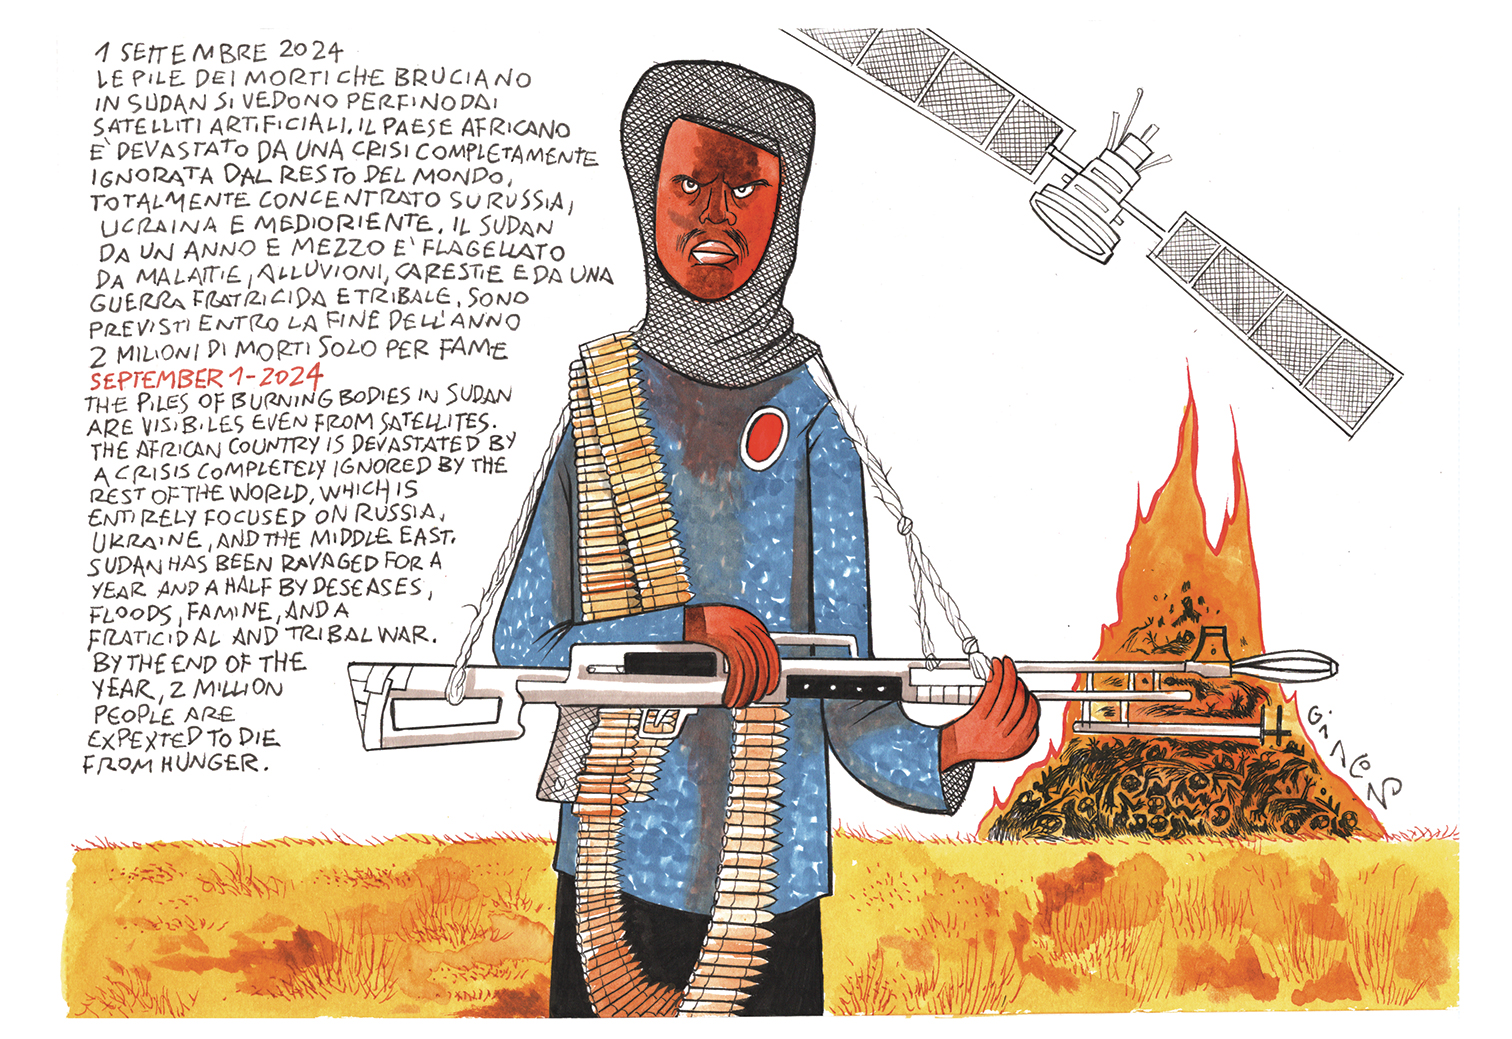 1 SETTEMBRE 2024
LE PILE DEI MORTI CHE BRUCIANO
IN SUDAN SI VEDONO PERFINO DAI
SATELLITI ARTIFICIALI. IL PAESE AFRICANO
E' DEVASTATO DA UNA CRISI COMPLETAMENTE
IGNORATA DAL RESTO DEL MONDO,
TOTALMENTE CONCENTRATO SU RUSSIA,
UCRAINA E MEDIORIENTE. IL SUDAN
DA UN ANNO E MEZZO E' FLAGELLATO
DA MALATTIE, ALLUVIONI, CARESTIE E DA UNA
GUERRA FRATRICIDA E TRIBALE, SONO
PREVISTI ENTRO LA FINE DELL'ANNO
2 MILIONI DI MORTI SOLO PER FAME
SEPTEMBER 1-2024
THE PILES OF BURNING BODIES IN SUDAN
ARE VISIBILES EVEN FROM SATELLITES.
THE AFRICAN COUNTRY IS DEVASTATED BY
A CRISIS COMPLETELY IGNORED BY THE
REST OF THE WORLD, WHICH IS
ENTIRELY FOCUSED ON RUSSIA,
UKRAINE, AND THE MIDDLE EAST.
SUDAN HAS BEEN RAVAGED FOR A
YEAR AND A HALF BY DESEASES,
FLOODS, FAMINE, AND A
FRATICIDAL AND TRIBAL WAR.
BY THE END OF THE
YEAR, 2 MILLION
PEOPLE ARE
EXPEXTED TO DIE
FROM HUNGER.
GIACON